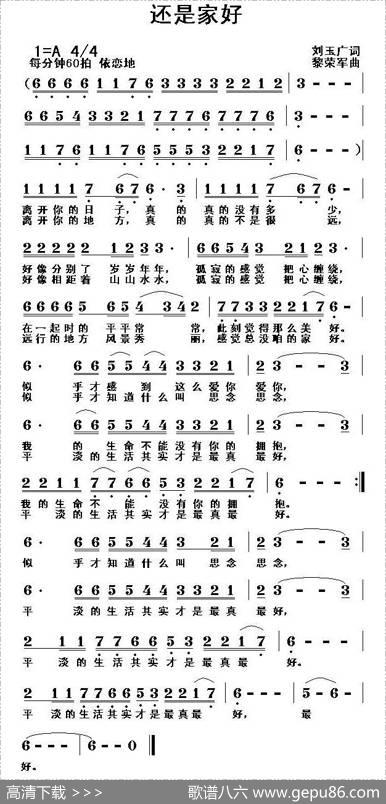 还是家好
1=A 4/4 刘玉广词
每分钟60拍 依恋地 黎荣军曲
(6 6 6 6 1 1 1 1 3 3 3 3 2 2 1 2 | 3 - - - |
6 6 6 6 1 1 1 1 3 3 2 1 7 7 7 6 7 7 7 7 |
1 1 7 6 1 1 7 6 5 5 5 4 3 3 2 1 | 6 - - - )
1 1 1 1 1 7 6 7 6 · 3 | 1 1 1 1 7 6 7 6 - - |
离开你的日子,真的真的没有多少,
离开你的地方,真的真的不是很远,
2 2 2 2 2 1 2 2 1 2 3 · | 6 6 5 4 3 2 2 1 3 - - |
好像分别了岁岁年年,孤寂的感觉把心缠绕,
好像相距着山山水水,孤寂的感觉把心缠绕,
6 6 6 6 5 6 5 4 3 4 2 | 7 7 3 3 2 2 1 7 6 - - |
在一起时的平平常常,此刻觉得那么美好。
远行的地方风景秀丽,感觉总没咱的家好。
6 · 6 6 5 5 4 4 3 3 2 1 | 2 3 - - 3 |
似乎才感到这么爱你爱你,
似乎才知道什么叫思念思念,
6 · 6 6 5 5 4 4 3 3 2 1 | 2 3 - - 3 |
我的生命不能没有你的拥抱,
平淡的生活其实才是最真最好,
2 2 1 1 7 7 6 6 5 3 2 2 1 7 | 6 - - - :‖
我的生命不能没有你的拥抱。
平淡的生活其实才是最真最好。
6 · 6 6 5 5 4 4 3 3 2 1 | 2 3 - - 3 |
似乎才知道什么叫思念思念,
6 · 6 6 5 5 4 4 3 3 2 1 | 2 3 - - 3 |
平淡的生活其实才是最真最好,
2 1 1 7 7 6 6 5 3 2 2 1 7 | 6 - - - |
平淡的生活其实才是最真最好。
2 1 1 7 7 6 6 5 3 2 2 1 7 | 6 - - - | 2 - - - |
平淡的生活其实才是最真最好,最
6 - - - | 6 - - 0 ‖
好。
高清下载 > > > 歌谱八六 www.gepu86.com